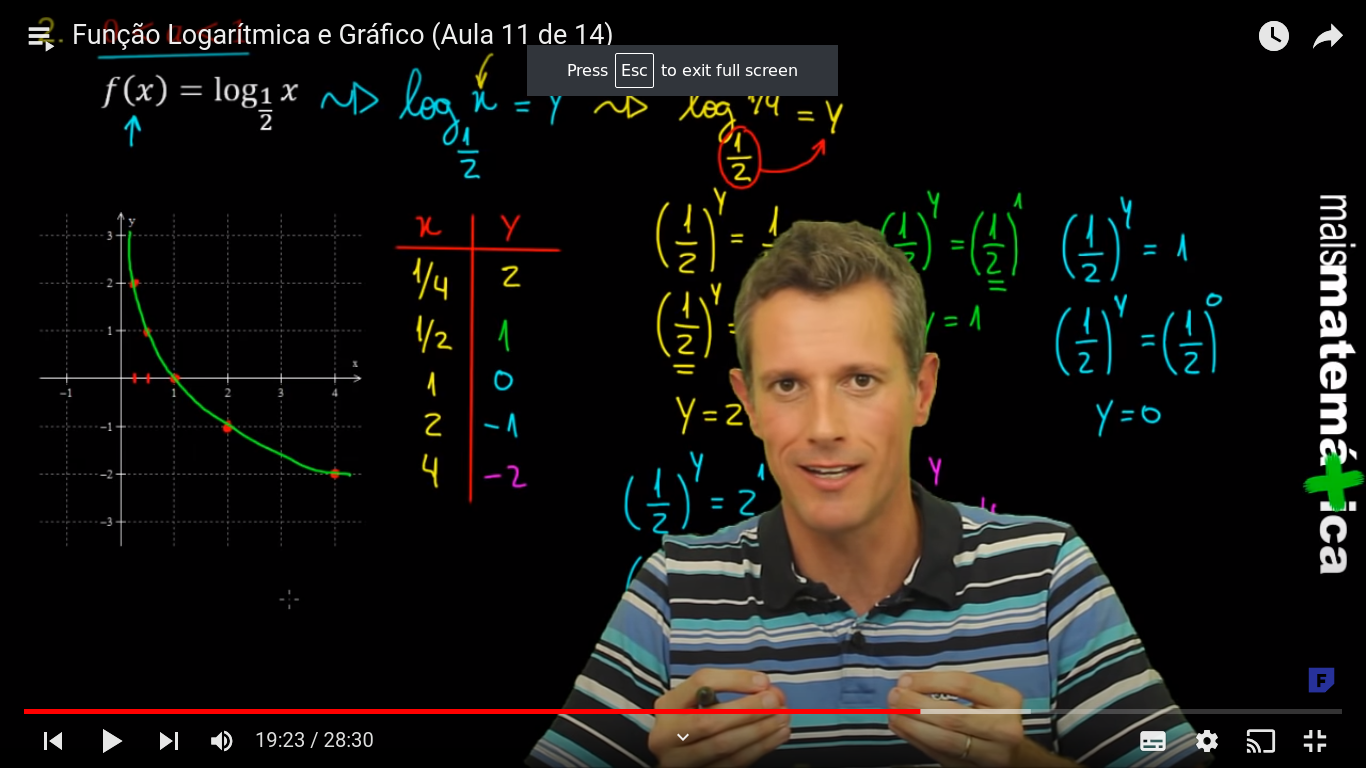 2. 0 < a < 1
Função Logarítmica e Gráfico (Aula 11 de 14)
Press Esc to exit full screen
f(x) = log 1/2 x
log 1/2 x = y
log 1/2 1/4 = y
x y
1/4 2
1/2 1
1 0
2 -1
4 -2
y
3
2
1
x
−1 1 2 3 4
−1
−2
−3
(1/2)^y = 1
(1/2)^y =
y = 2
(1/2)^y = (1/2)^1
y = 1
(1/2)^y = 1
(1/2)^y = (1/2)^0
y = 0
(1/2)^y = 2^1
y
maismatemá+ica
F
19:23 / 28:30